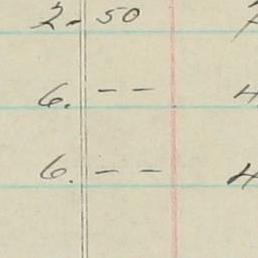 2. 50
6. - - 4
6. - - 4